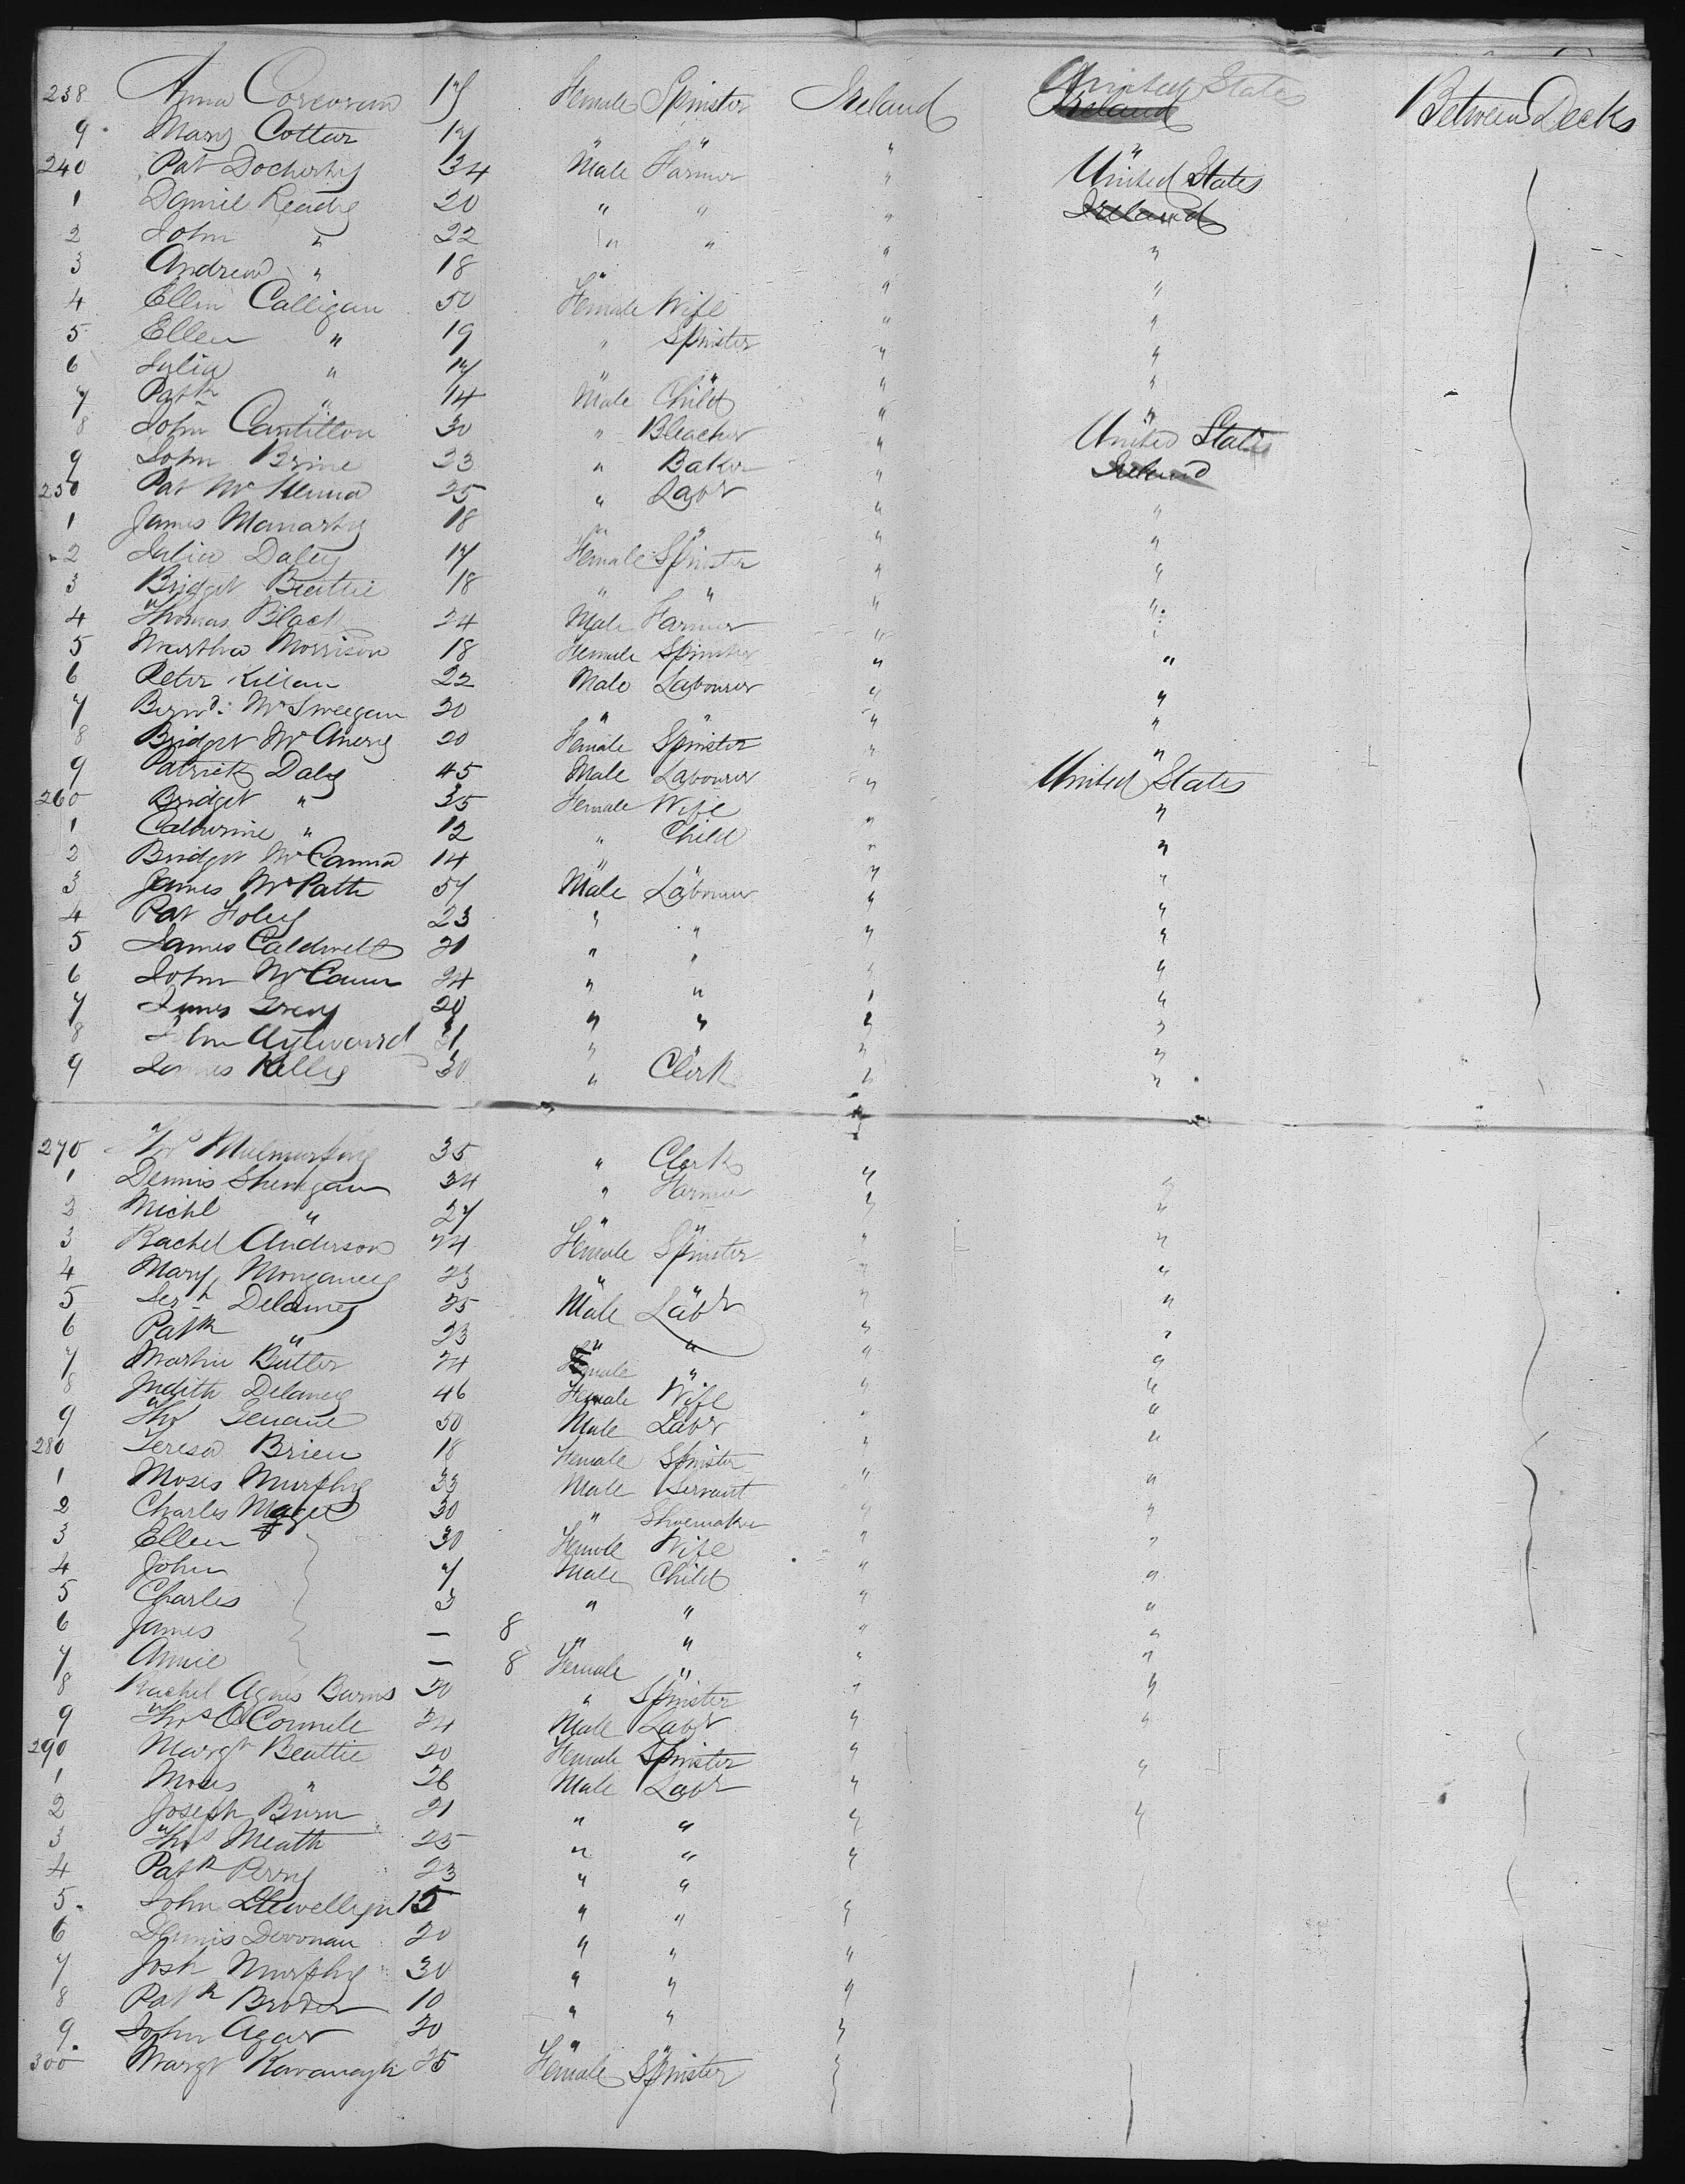 238 Anna Corcoran 17 Female Spinster Ireland United States Ireland Between Decks
9 Mary Cotter 17 " " " "
240 Pat Docherty 34 Male Farmer " United States
1 Daniel Ready 20 " " " Ireland
2 John " 22 " " " "
3 Andrew " 18 " " "
4 Ellen Calligan 50 Female Wife " "
5 Ellen " 19 " Spinster " "
6 Julia " 17 " " " "
7 Patk " 14 Male Child " "
8 John Cantillon 30 " Bleacher " United States
9 John Brine 23 " Baker " Ireland
250 Pat McKenna 25 " Labr " "
1 James Manarty 18 " " " "
2 Julia Daley 17 Female Spinster " "
3 Bridget Beattie 18 " " " "
4 Thomas Black 24 Male Farmer " "
5 Martha Morrison 18 Female Spinster " "
6 Peter Killen 22 Male Labourer " "
7 Bernd: McSweegan 20 " " " "
8 Bridget McAnery 20 Female Spinster " "
9 Patrick Daly 45 Male Labourer " United States
260 Bridget " 35 Female Wife " "
1 Catherine " 12 " Child " "
2 Bridget McCanna 14 " " " "
3 James McPath 57 Male Labourer " "
4 Pat Foley 23 " " " "
5 James Caldwell 21 " " " "
6 John McCann 24 " " " "
7 James Greay 20 " " " "
8 John Aylward 21 " " " "
9 James Kelly 30 " Clerk " "
270 35 " Clerk "
1 Dennis Shenegan 34 " Farmer " "
2 Michl " 27 " " " "
3 Rachel Anderson 24 Female Spinster " "
4 Mary Mongavey 23 " " " "
5 Delaney 25 Male Labr " "
6 Patk " 23 " " " "
7 Martin Butler 24 Female " " "
8 Judith Delaney 46 Female Wife " "
9 Thos Genane 50 Male Labr " "
280 Teresa Brien 18 Female Spinster " "
1 Moses Murphy 33 Male Servant " "
2 Charles Magee 30 " Shoemaker " "
3 Ellen 30 Female Wife " "
4 John 7 Male Child " "
5 Charles 3 " " " "
6 James — 8 " " " "
7 Annie — 8 Female " " "
8 Rachel Agnes Burns 20 " Spinster " "
9 Thos O'Connell 24 Male Labr " "
290 Margt Beattie 20 Female Spinster " "
1 Moses " 26 Male Labr " "
2 Joseph Burn 21 " " " "
3 Thos Meath 25 " " "
4 Patk Perry 23 " "
5 John Llewellyn 15 " " "
6 Dennis Devonan 20 " " "
7 Josh Murphy 30 " " "
8 Patk Broder 10 " " "
9 John Agar 20 " " "
300 Margt Kavanagh 25 Female Spinster "